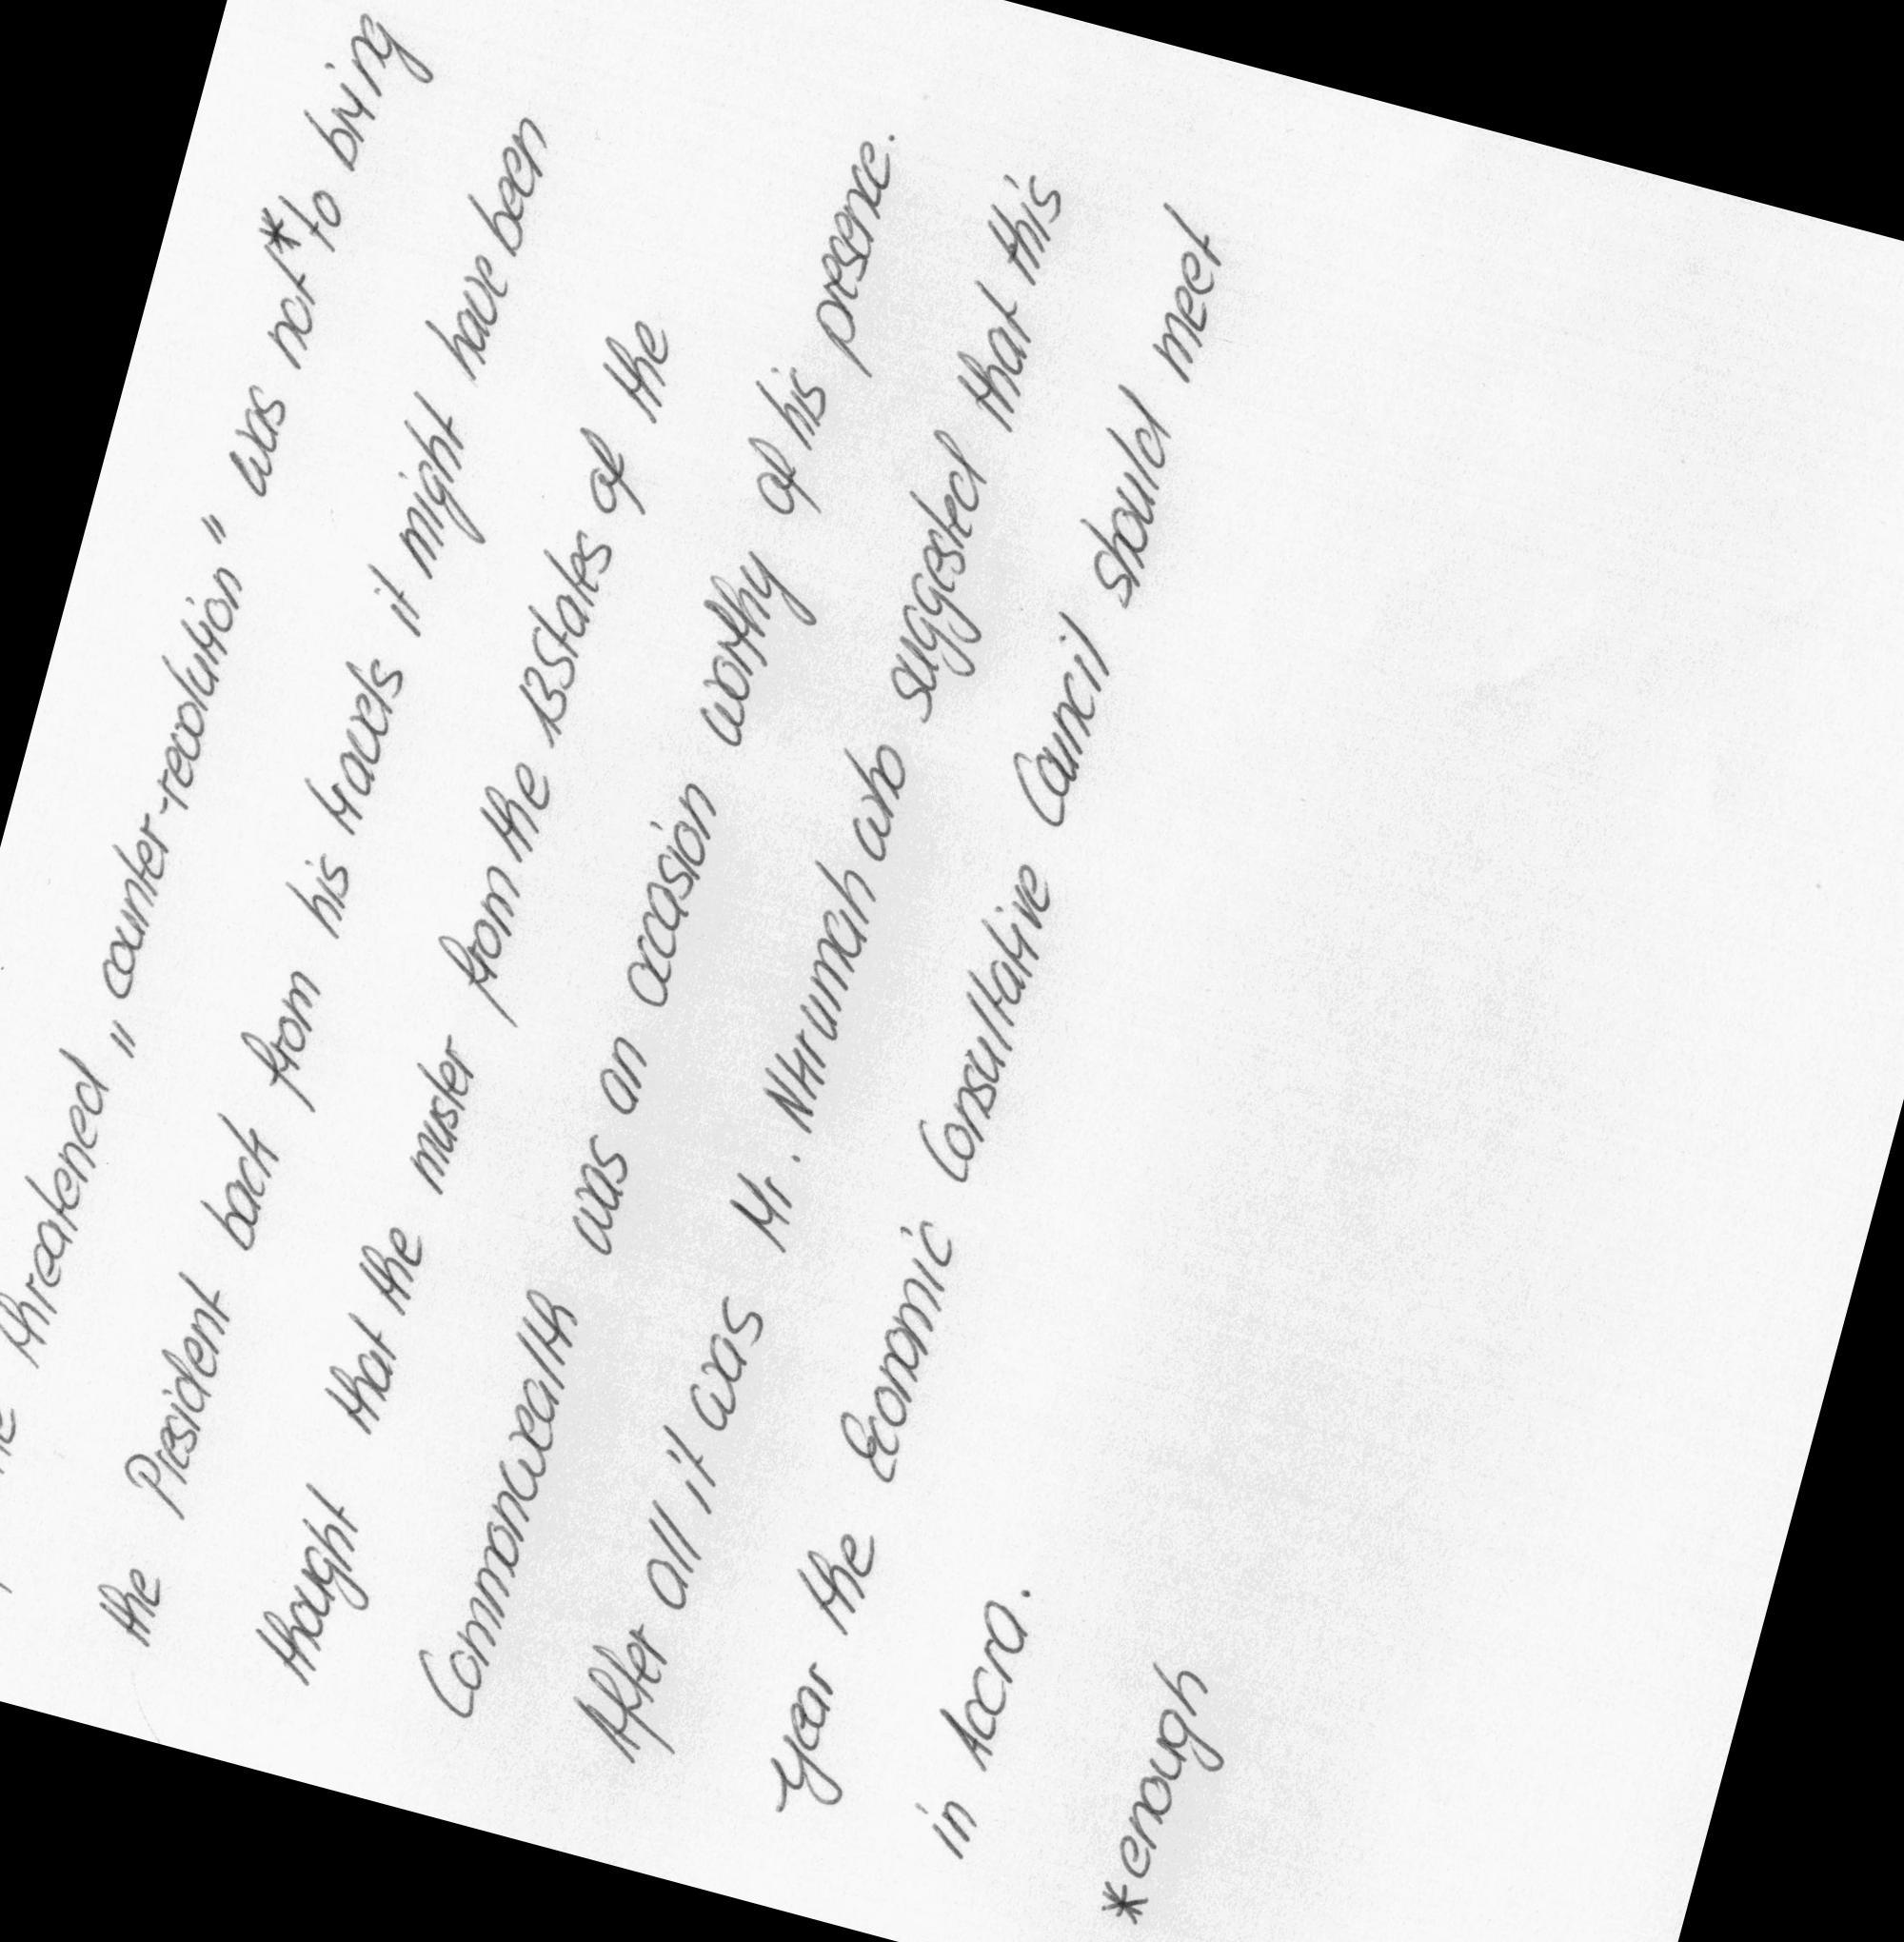 threatened „counter-revolution" was not* to bring
the President back from his travels it might have been
thought that the muster from the 13 States of the
Commonwealth was an occasion worthy of his presence.
After all it was Mr. Nkrumah who suggested that this
year the Economic Consultative Council should meet
in Accra.
*enough